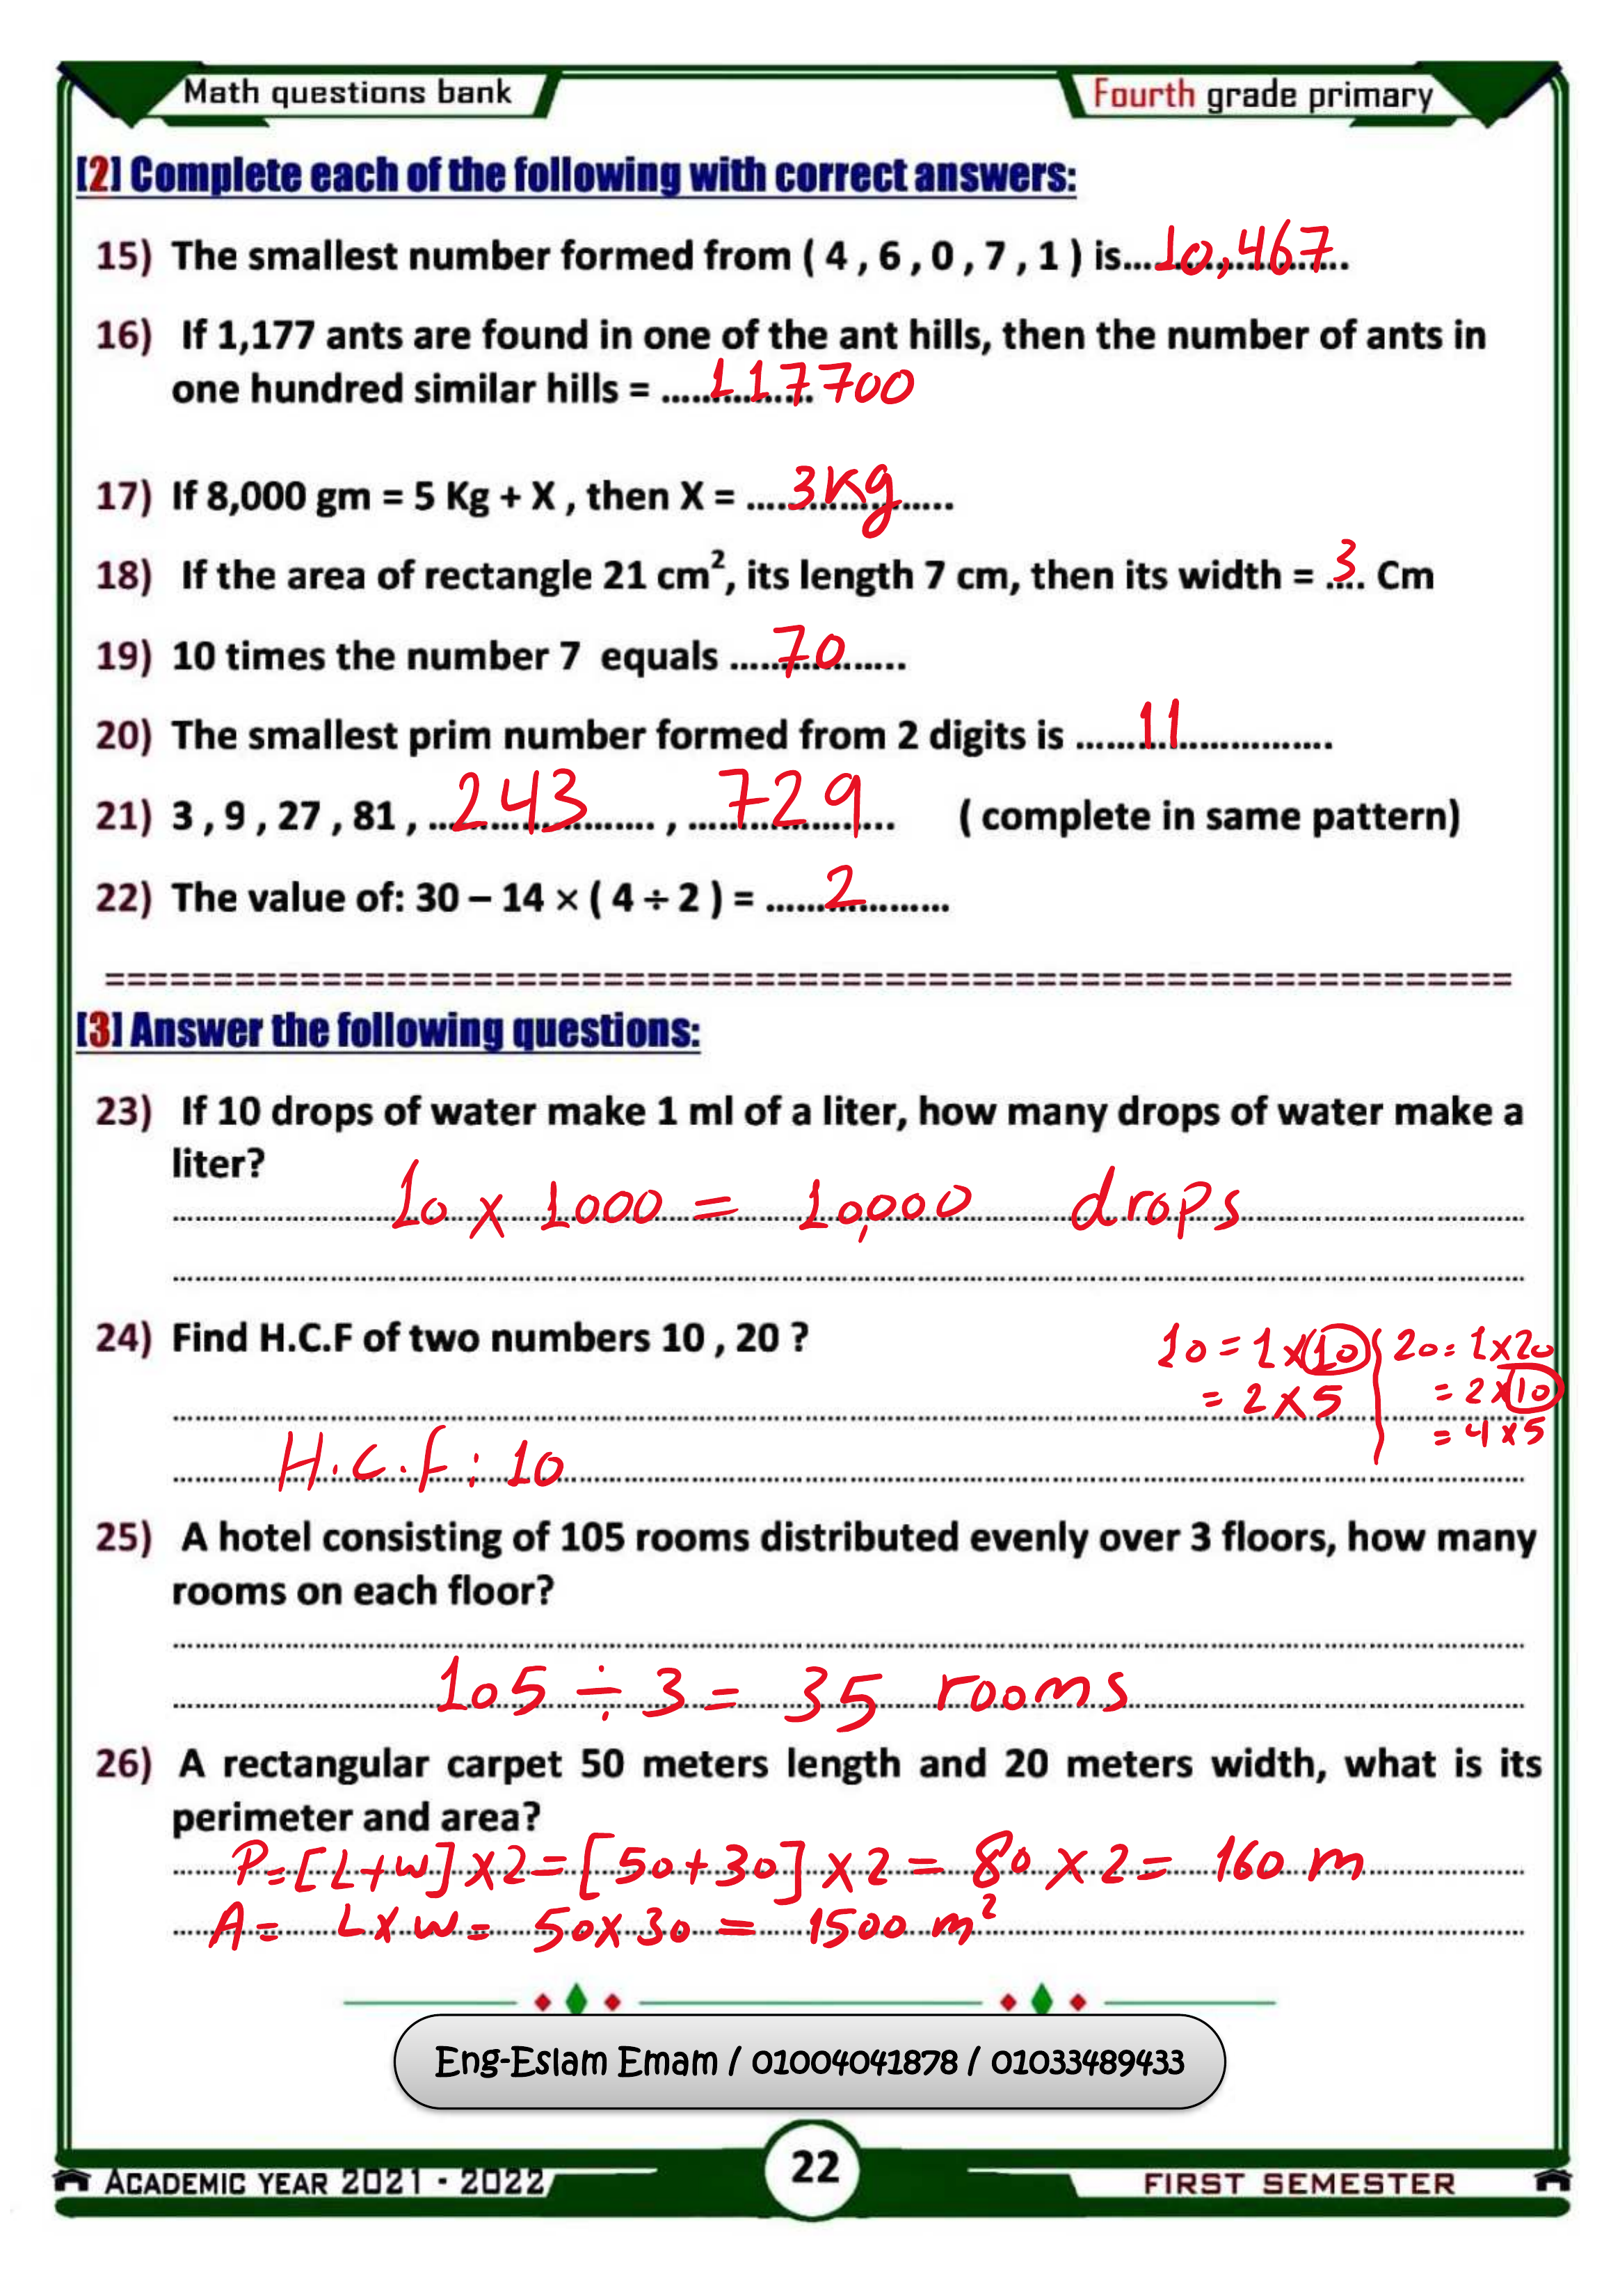 Math questions bank
Fourth grade primary
[2] Complete each of the following with correct answers:
15) The smallest number formed from ( 4 , 6 , 0 , 7 , 1 ) is...10,467...
16) If 1,177 ants are found in one of the ant hills, then the number of ants in
one hundred similar hills = ...117700
17) If 8,000 gm = 5 Kg + X , then X = ...3Kg...
18) If the area of rectangle 21 cm², its length 7 cm, then its width = 3.... Cm
19) 10 times the number 7 equals ...70...
20) The smallest prim number formed from 2 digits is ...11...
21) 3 , 9 , 27 , 81 , ...243... , ...729... ( complete in same pattern)
22) The value of: 30 – 14 × ( 4 ÷ 2 ) = ...2...
[3] Answer the following questions:
23) If 10 drops of water make 1 ml of a liter, how many drops of water make a
liter?
10 x 1000 = 10,000 drops
24) Find H.C.F of two numbers 10 , 20 ?
10 = 1 x 10 20 = 1 x 20
= 2 x 5 = 2 x 10
= 4 x 5
H.C.F : 10
25) A hotel consisting of 105 rooms distributed evenly over 3 floors, how many
rooms on each floor?
105 ÷ 3 = 35 rooms
26) A rectangular carpet 50 meters length and 20 meters width, what is its
perimeter and area?
P = [L+W] x 2 = [50+30] x 2 = 80 x 2 = 160 m
A = L x W = 50 x 30 = 1500 m²
Eng-Eslam Emam / 01004041878 / 01033489433
ACADEMIC YEAR 2021 - 2022
22
FIRST SEMESTER